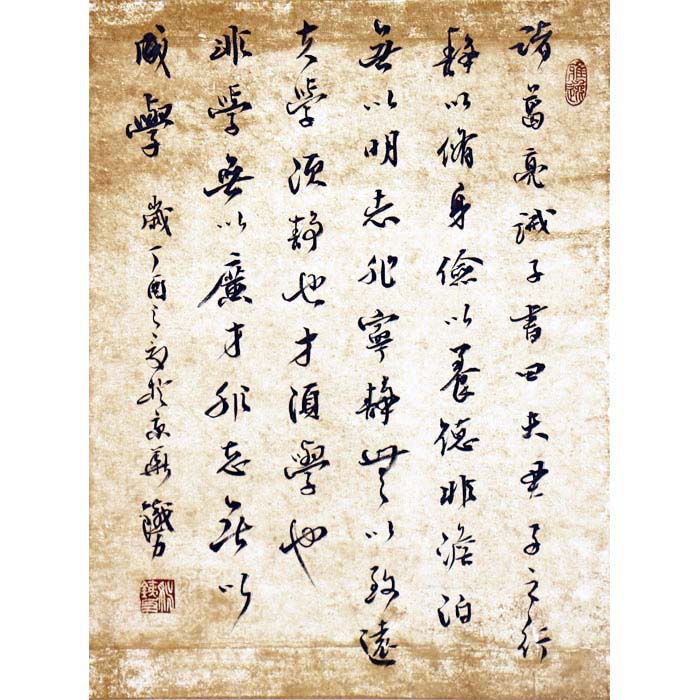 諸葛亮誡子書曰夫君子之行
靜以脩身儉以養德非澹泊
無以明志非寧靜無以致遠
夫學須靜也才須學也
非學無以廣才非志無以
成學 歲丁酉之夏於京華